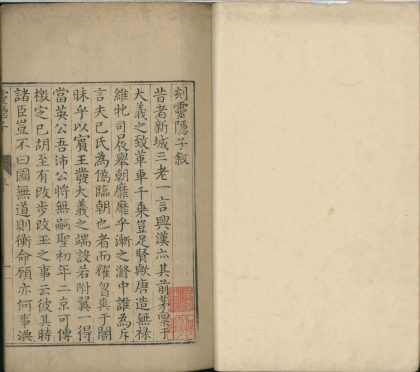 刻靈隱子敘
昔者新城三老一言興漢亦其前茅稟于
大義之致革車千乘豈足賢歟唐造無祿
維牝司晨舉朝靡靡乎漸之滫中誰為斥
言夫巳氏為偽臨朝也者而獾曶爽于闇
昧乎以賓王發大義之端設若附翼一得
當英公吾沛公將無嗣聖初年二京可傳
檄定已胡至有改步改王之事云彼其時
諸臣豈不曰國無道則衡命願亦何事渙
靈隱子